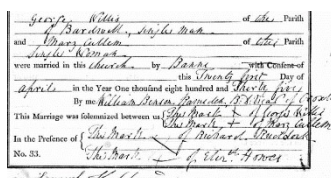 George Willis of this Parish
of Bardwell, Single Man
and Mary Cullum of this Parish
Single Woman
were married in this Church by Banns with Consent of
this Twenty first Day of
April in the Year One thousand eight hundred and Thirty five
By me William Benson
This Marriage was solemnized between us { The Mark + of George Willis
The Mark + of Mary Cullum
In the Presence of { The Mark of Richard
No. 53. The Mark of Elizth Howes